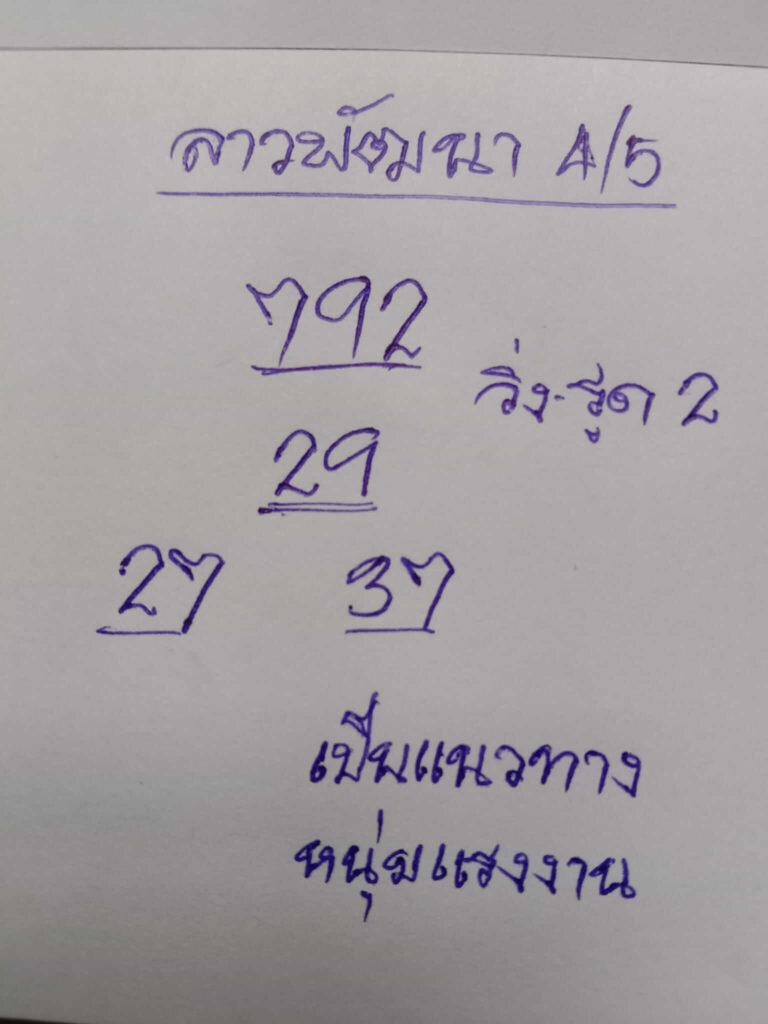 ลาวพัฒนา 4/5
792
วิ่ง-รูด 2
29
27 37
เป็นแนวทาง
หนุ่มแรงงาน